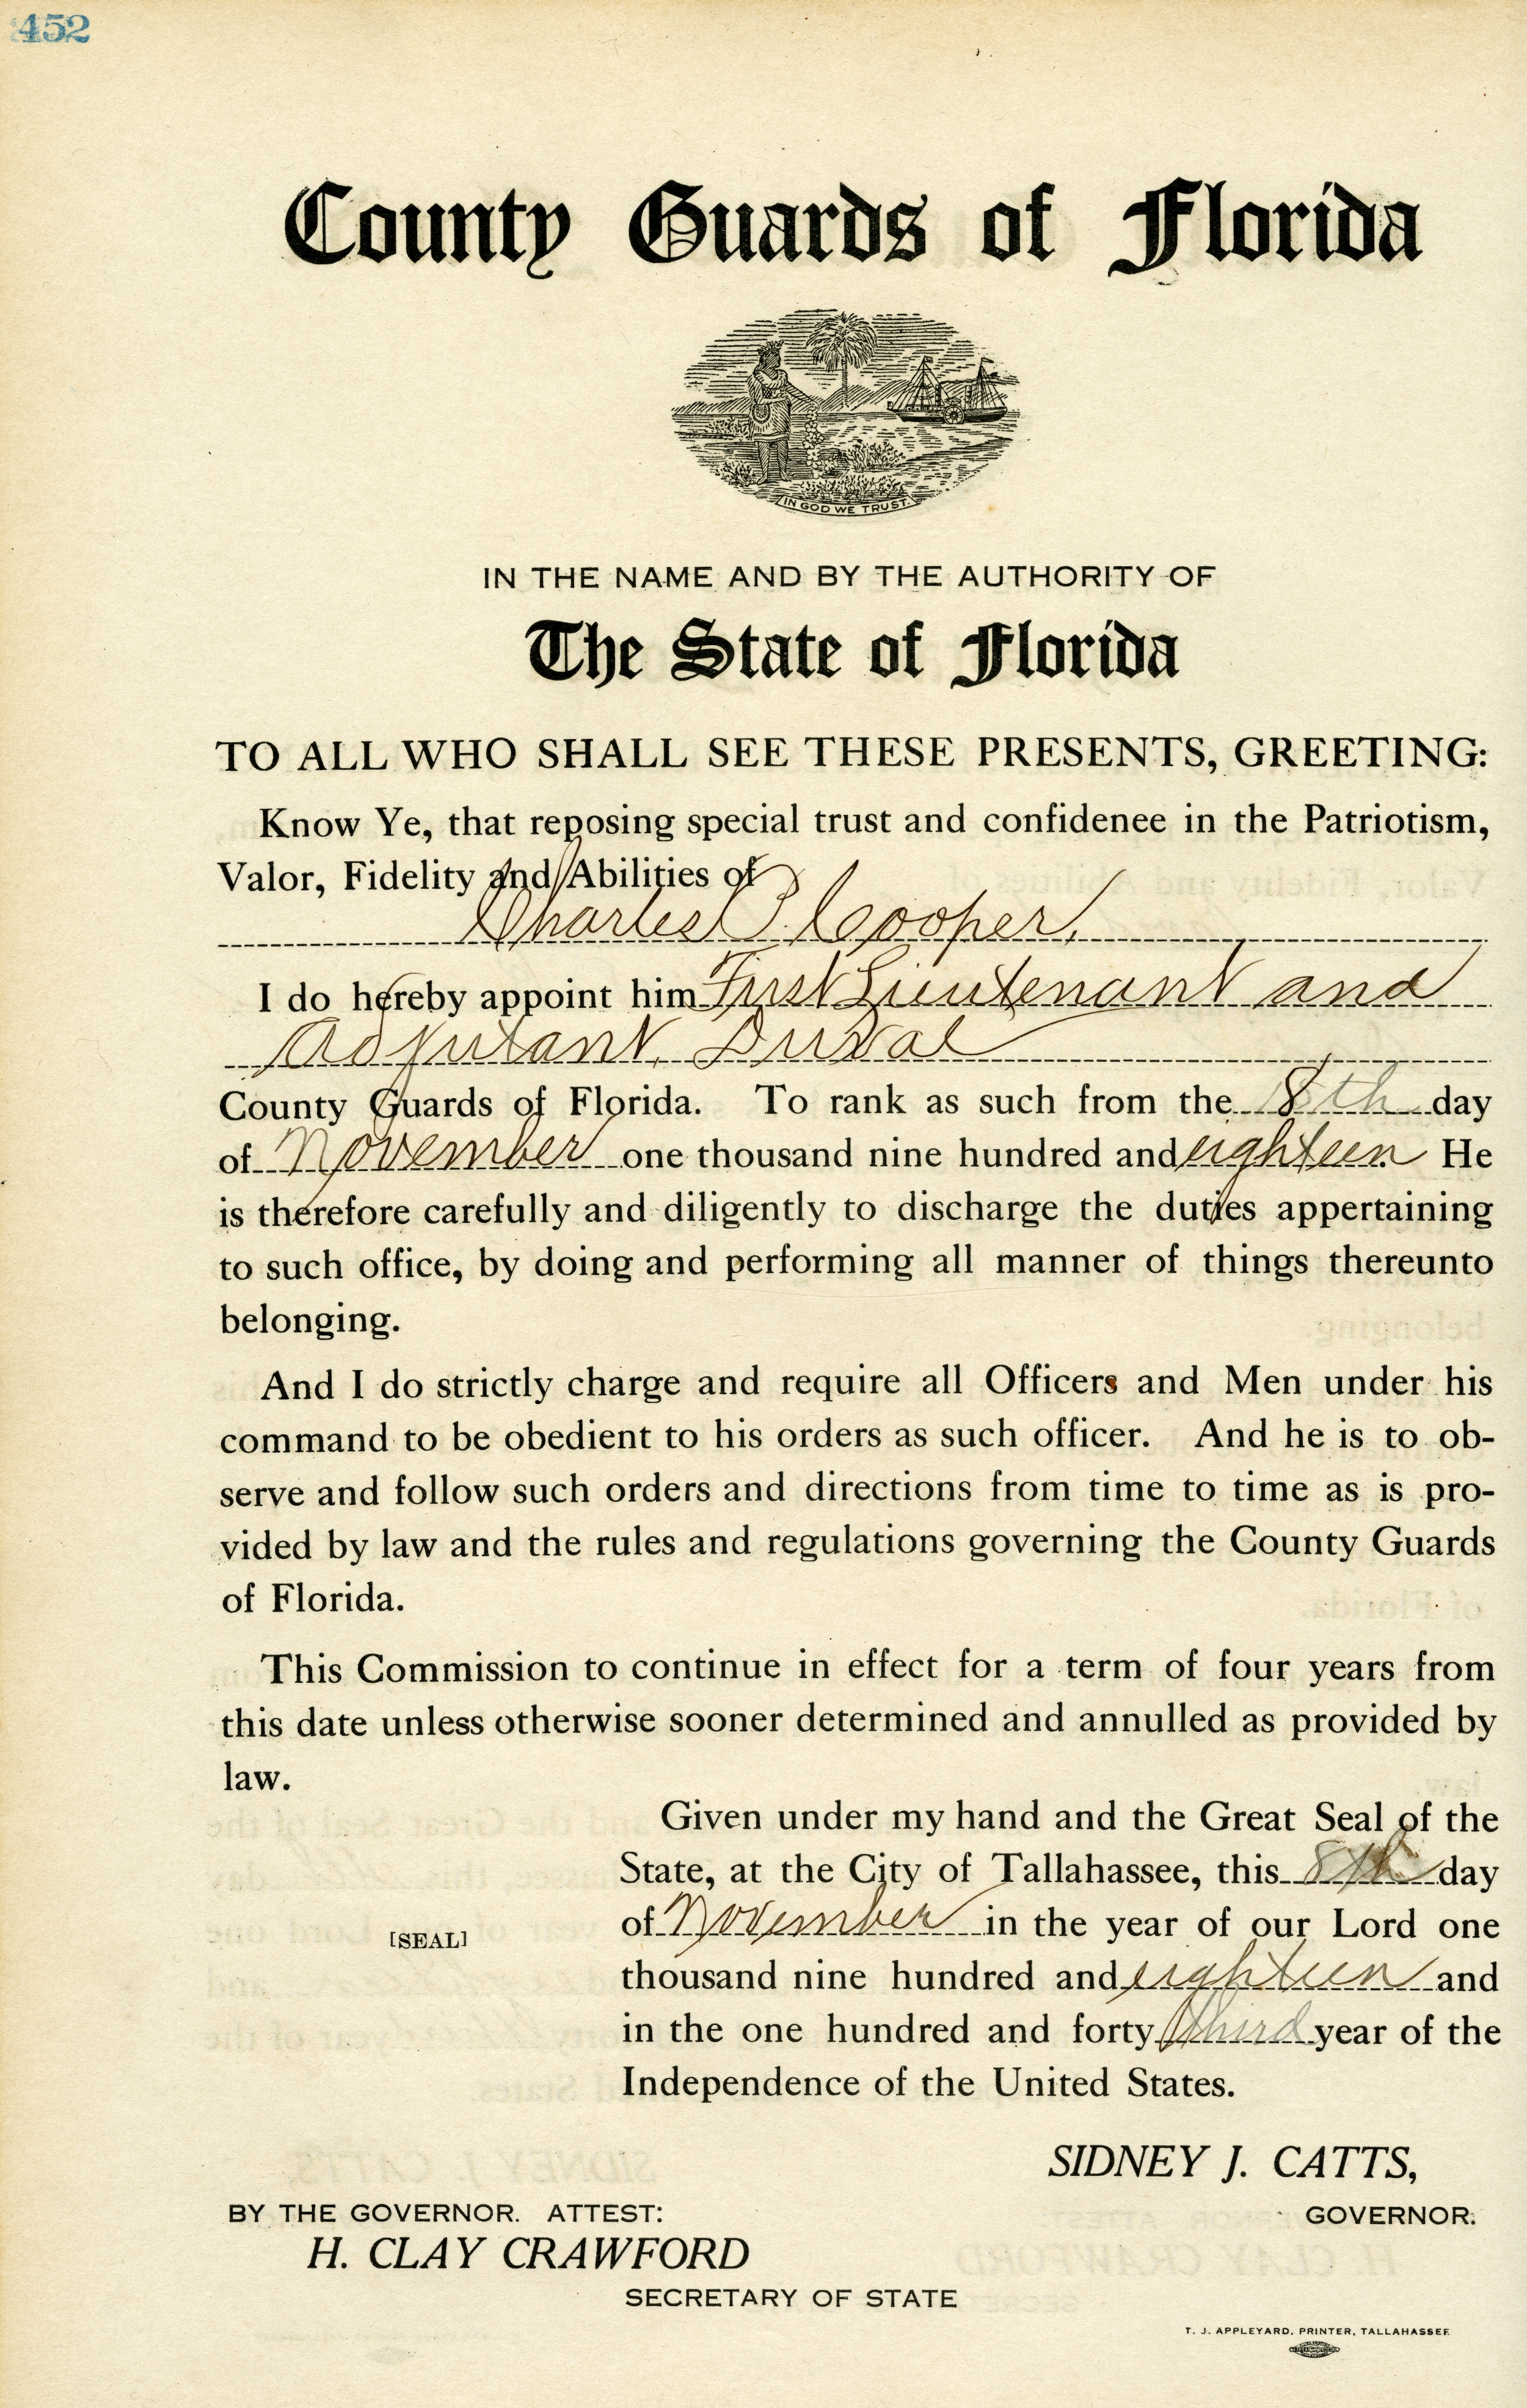 452
County Guards of Florida
IN GOD WE TRUST.
IN THE NAME AND BY THE AUTHORITY OF
The State of Florida
TO ALL WHO SHALL SEE THESE PRESENTS, GREETING:
Know Ye, that reposing special trust and confidenee in the Patriotism,
Valor, Fidelity and Abilities of
Charles P. Cooper,
I do hereby appoint him First Lieutenant and
Adjutant, Duval
County Guards of Florida. To rank as such from the 8th day
of November one thousand nine hundred and eighteen. He
is therefore carefully and diligently to discharge the duties appertaining
to such office, by doing and performing all manner of things thereunto
belonging.
And I do strictly charge and require all Officers and Men under his
command to be obedient to his orders as such officer. And he is to ob-
serve and follow such orders and directions from time to time as is pro-
vided by law and the rules and regulations governing the County Guards
of Florida.
This Commission to continue in effect for a term of four years from
this date unless otherwise sooner determined and annulled as provided by
law.
Given under my hand and the Great Seal of the
State, at the City of Tallahassee, this 8th day
of November in the year of our Lord one
[SEAL]
thousand nine hundred and eighteen and
in the one hundred and forty third year of the
Independence of the United States.
SIDNEY J. CATTS,
GOVERNOR.
BY THE GOVERNOR. ATTEST:
H. CLAY CRAWFORD
SECRETARY OF STATE
T. J. APPLEYARD, PRINTER, TALLAHASSEE